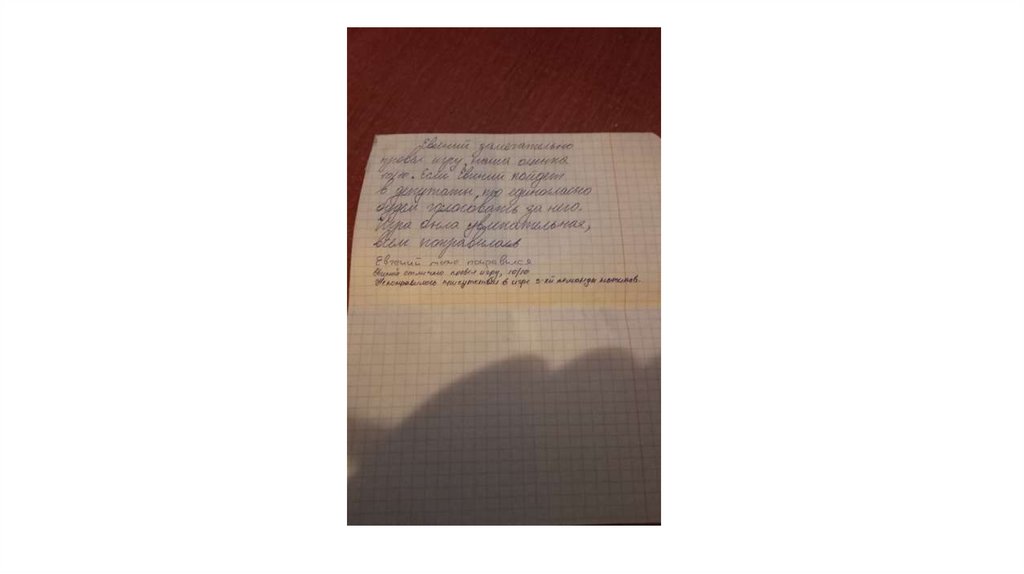 Евгений замечательно
провёл игру, наша оценка
Если Евгений пойдет
в депутаты, единогласно
будем голосовать за него.
Игра была увлекательная,
всем понравилась
Евгений тоже понравился
отлично провёл игру, 10/10
Не понравилось присутствие в игре 2-ей команды